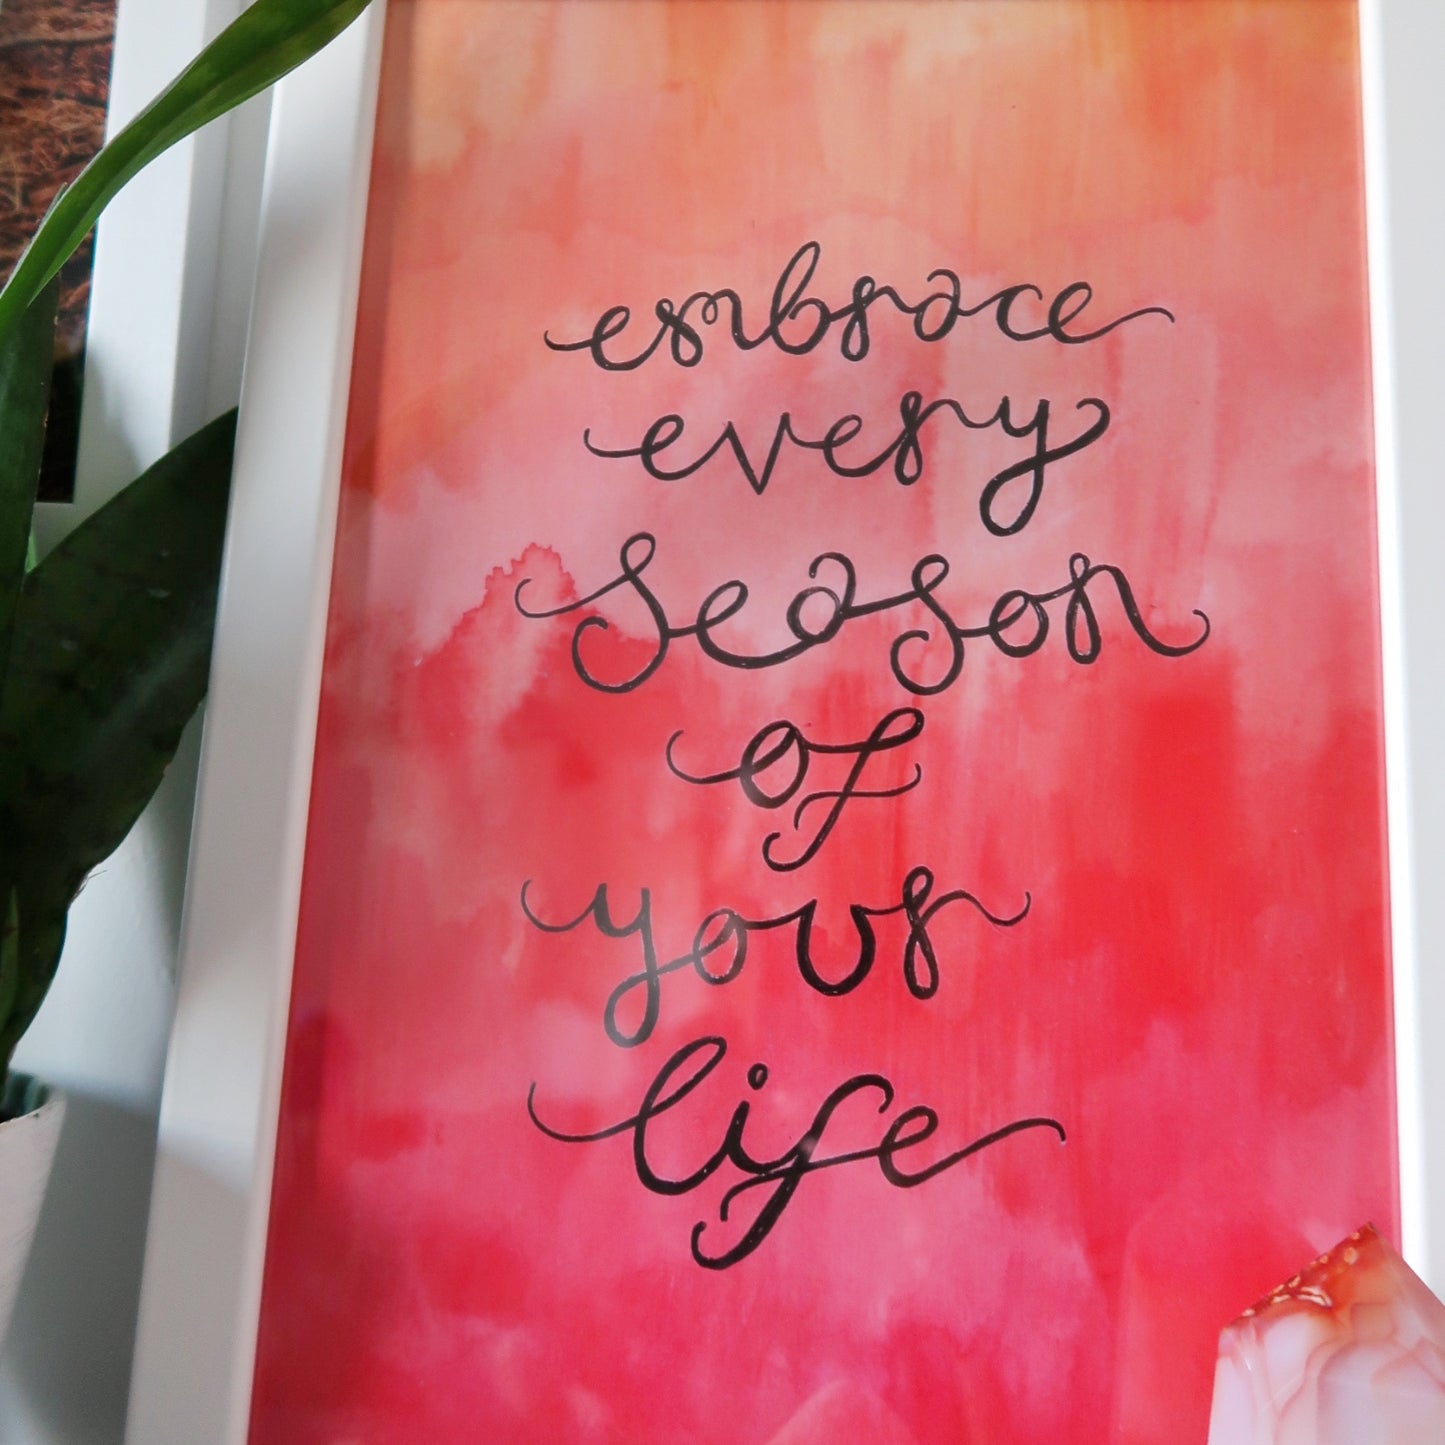 embrace
every
season
of
your
life